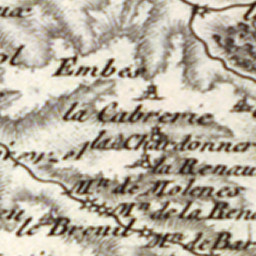 Embes
la Cabrerie
la Chardonner
la Renau
Min de Molenes
Min de la Ren
le Breuil
Min de Bar